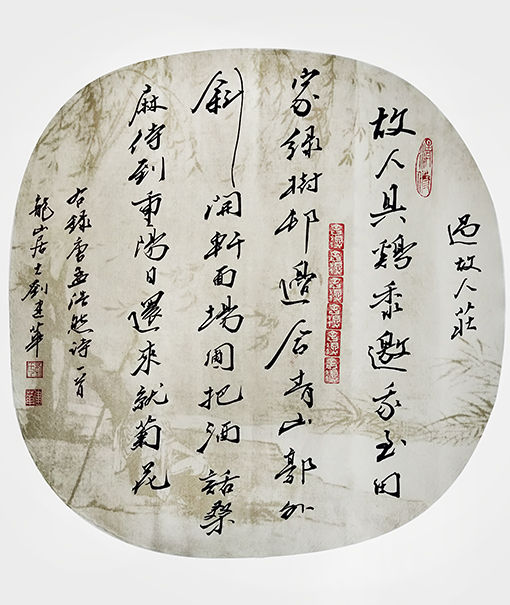 過故人莊
故人具鷄黍邀我至田
家綠樹邨邊合青山郭外
斜開軒面場圃把酒話桑
麻待到重陽日還來就菊花
右錄唐孟浩然詩一首
龍山居士刘建華